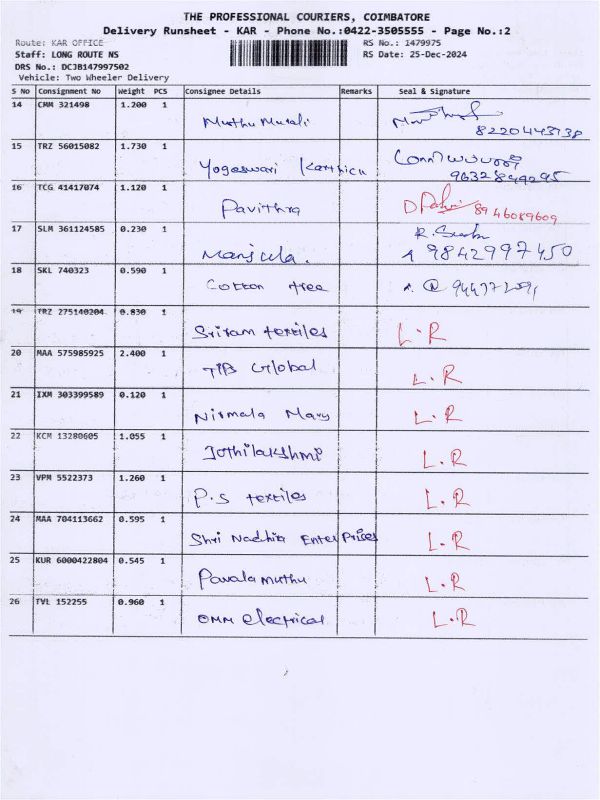 THE PROFESSIONAL COURIERS, COIMBATORE
Delivery Runsheet - KAR - Phone No.:0422-3505555 - Page No.:2
Route: KAR OFFICE
RS No.: 1479975
Staff: LONG ROUTE NS
RS Date: 25-Dec-2024
DRS No.: DCJB147997502
Vehicle: Two Wheeler Delivery
S No Consignment No Weight PCS Consignee Details Remarks Seal & Signature
14 CMM 321498 1.200 1 Muthu Murali
15 TRZ 56015082 1.730 1 Yogeswari Karthicu
16 TCG 41417074 1.120 1 Pavithra 8946089609
17 SLM 361124585 0.230 1 Manjula. 9842997450
18 SKL 740323 0.590 1 Cotton tree
19 TRZ 275140204 0.830 1 Sriram textiles L.R
20 MAA 575985925 2.400 1 Global L.R
21 IXM 303399589 0.120 1 Nirmala Mary L.R
22 KCM 13280605 1.055 1 Jothilakshmi L.R
23 VPM 5522373 1.260 1 P.S textiles L.R
24 MAA 704113662 0.595 1 Shri Nadhia EnterPrices L.R
25 KUR 6000422804 0.545 1 Pavalamuthu L.R
26 TVL 152255 0.960 1 OMM electrical L.R